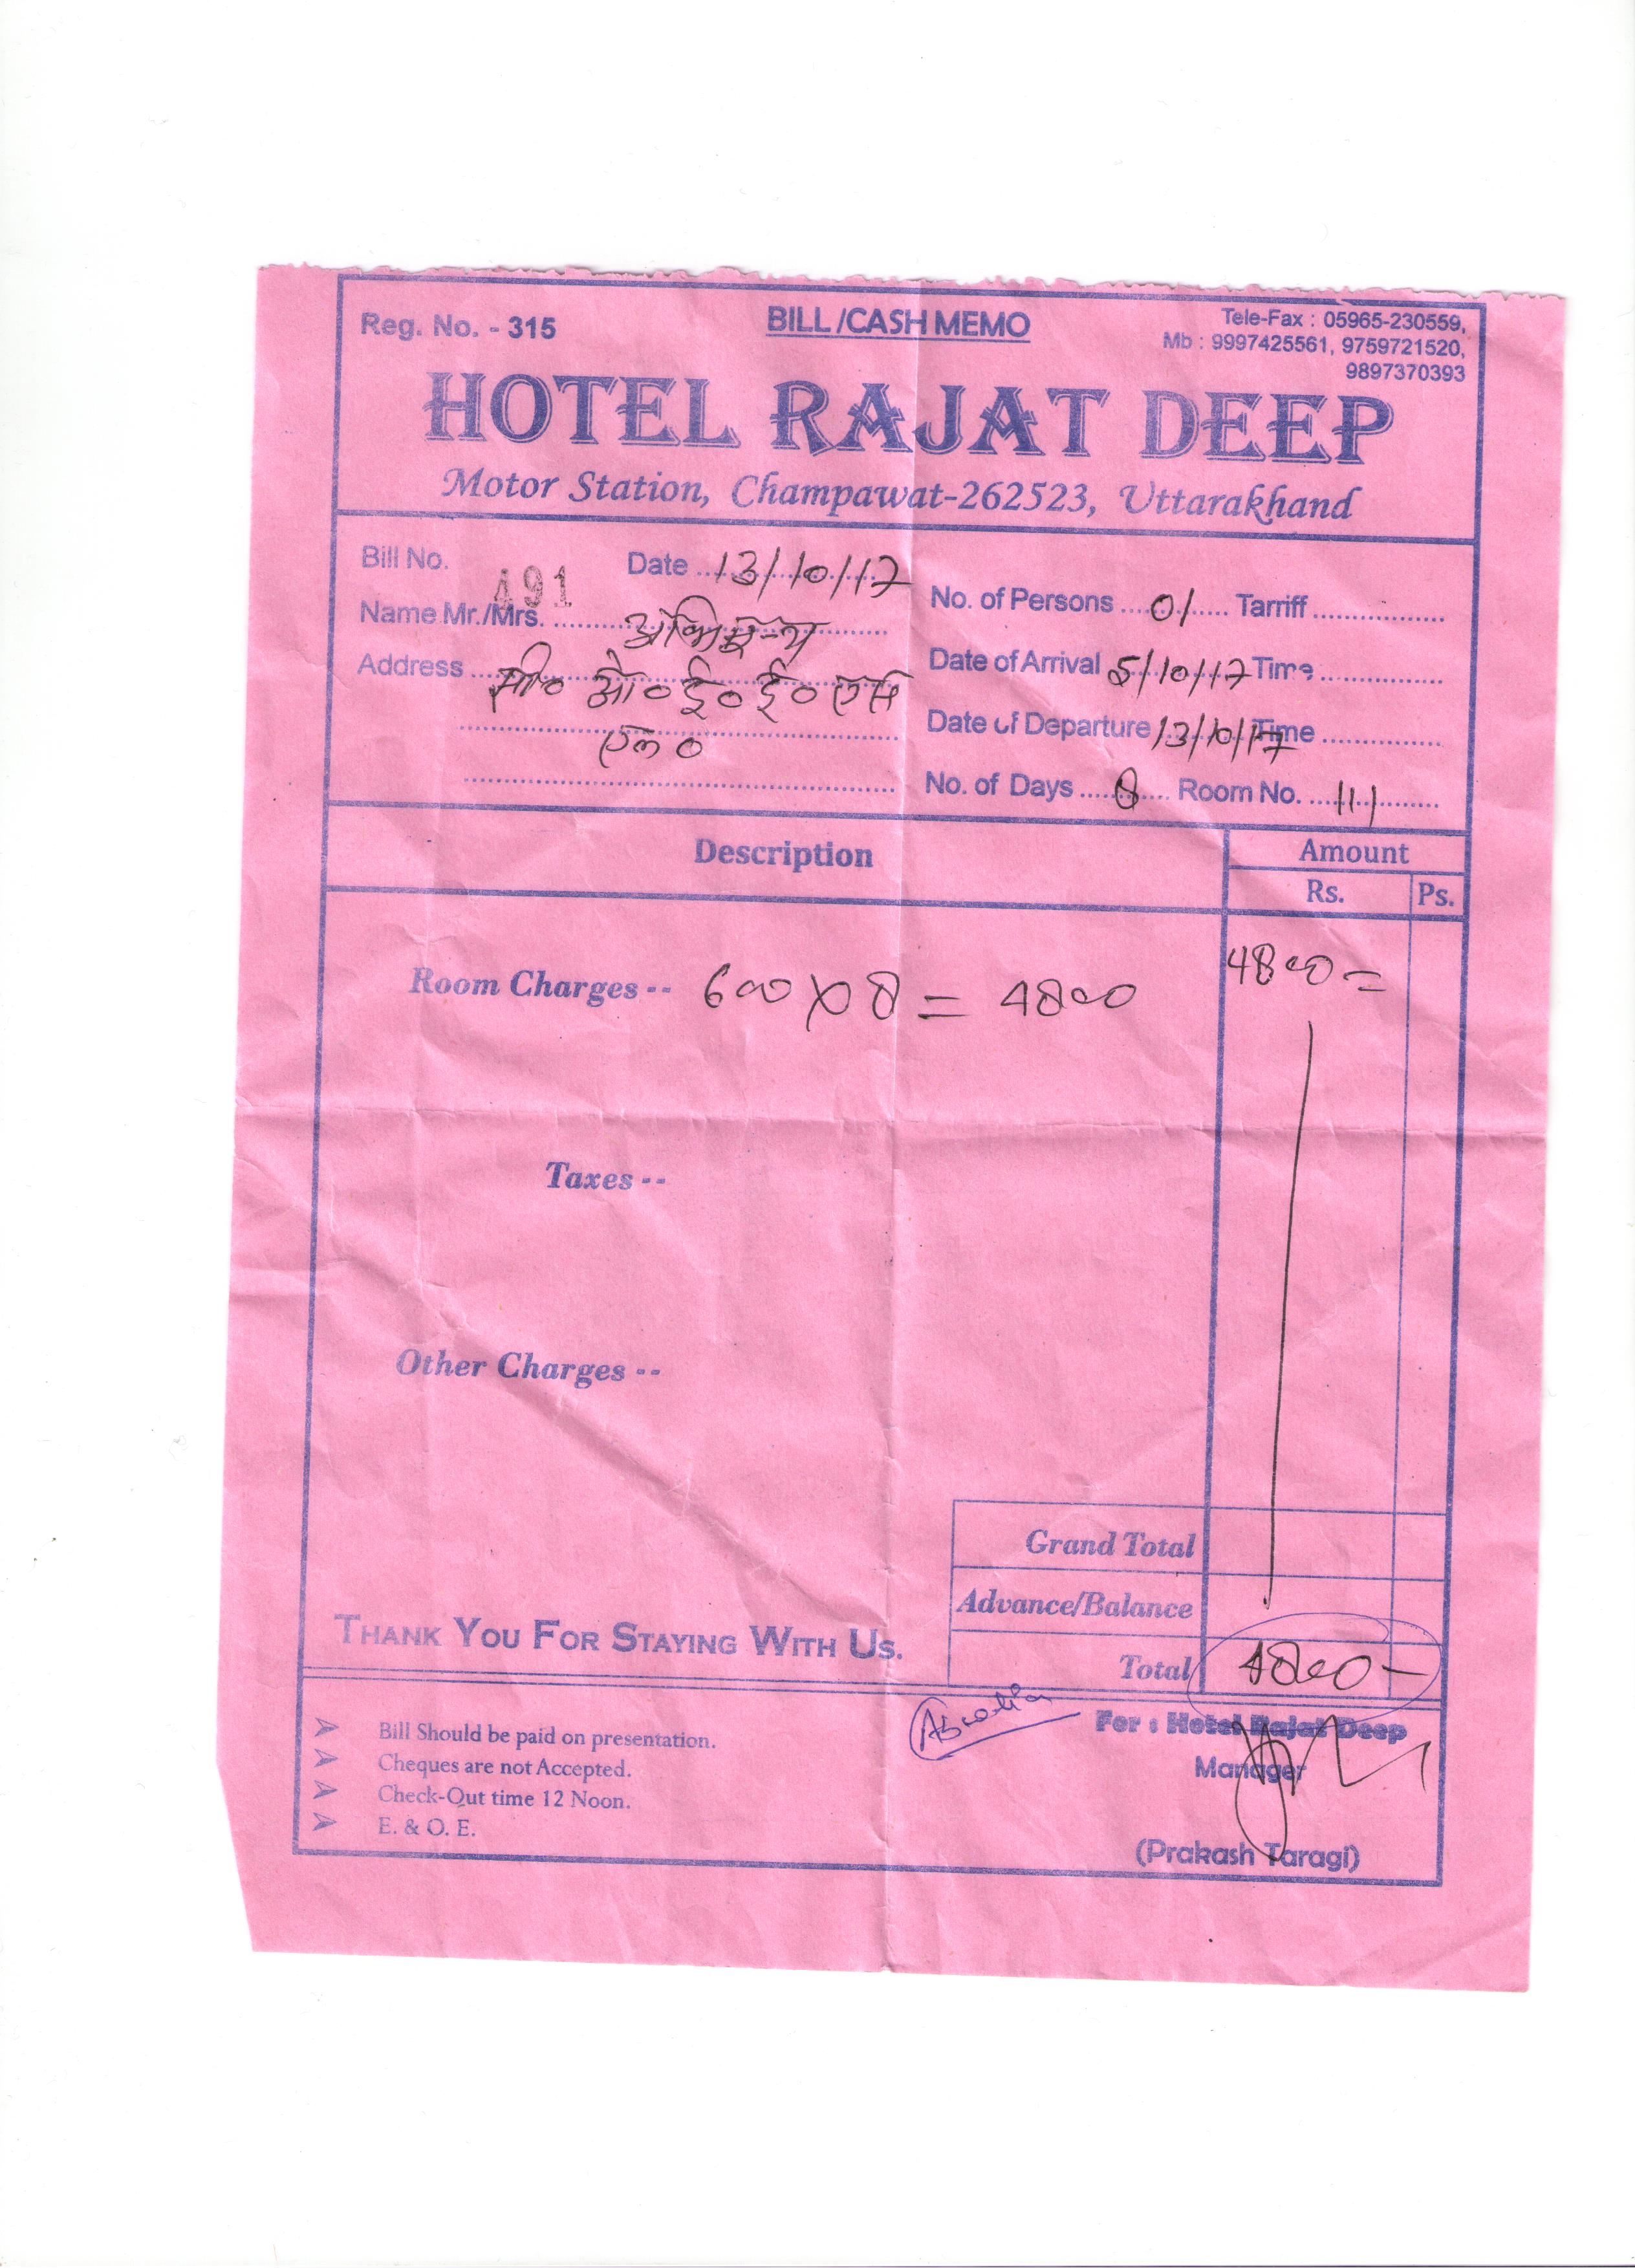 Reg. No. - 315
BILL/CASH MEMO
Tele-Fax : 05965-230559,
Mb : 9997425561, 9759721520,
9897370393
HOTEL RAJAT DEEP
Motor Station, Champawat-262523, Uttarakhand
Bill No. 491 Date 13/10/17
Name Mr./Mrs.
Address सी० ओ० ई० ई० एस
एल०
No. of Persons 01 Tarriff
Date of Arrival 5/10/17 Time
Date of Departure 13/10/17 Time
No. of Days 8 Room No. 111
Description
Amount
Rs. Ps.
Room Charges -- 600 X 8 = 4800 4800 =
Taxes --
Other Charges --
Grand Total
Advance/Balance
Total 4800 -
THANK YOU FOR STAYING WITH US.
Bill Should be paid on presentation.
Cheques are not Accepted.
Check-Out time 12 Noon.
E. & O. E.
For : Hotel Rajat Deep
Manager
(Prakash Taragi)